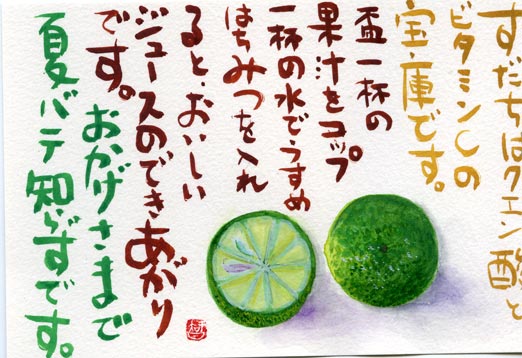 すだちはクエン酸と
ビタミンCの
宝庫です。
盃一杯の
果汁をコップ
一杯の水でうすめ
はちみつを入れ
ると、おいしい
ジュースのできあがり
です。
おかげさまで
夏バテ知らずです。